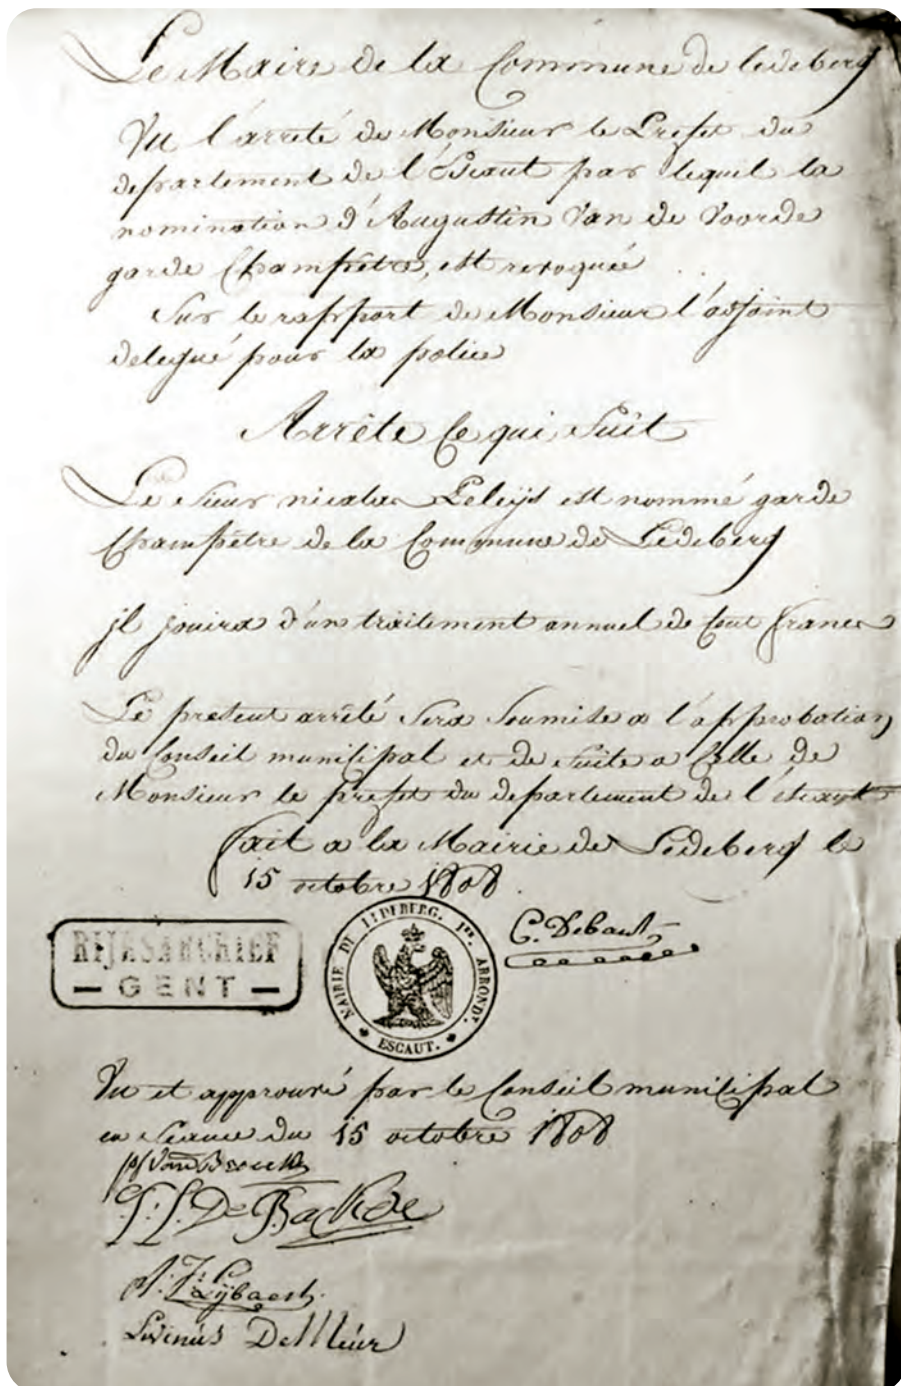 Le Maire de la Commune de ledeberg
Vu l'arreté de Monsieur le Prefet du
departement de l'Escaut par lequel la
nomination d'Augustin Van de Voorde
garde Champetre, est revoquée
Sur le rapport de Monsieur l'adjoint
delegué pour la police
Arrête Ce qui Suit
Le Sieur nicolas est nommé garde
Champêtre de la Commune de Ledeberg
jl jouira d'un traitement annuel de Cent francs
Le present arrêté Sera Soumise a l'approbation
du Conseil municipal et de Suite a Celle de
Monsieur le prefet du departement de l'escaut
fait a la Mairie de Ledeberg le
15 octobre 1808
RIJKSARCHIEF
GENT
MAIRIE DE LEDEBERG. Ier. ARRONDt.
ESCAUT.
C. Debaut
Vu et approuvé par le Conseil municipal
en Seance du 15 octobre 1808
De Backer
Lybaert
Livinus DeMeur